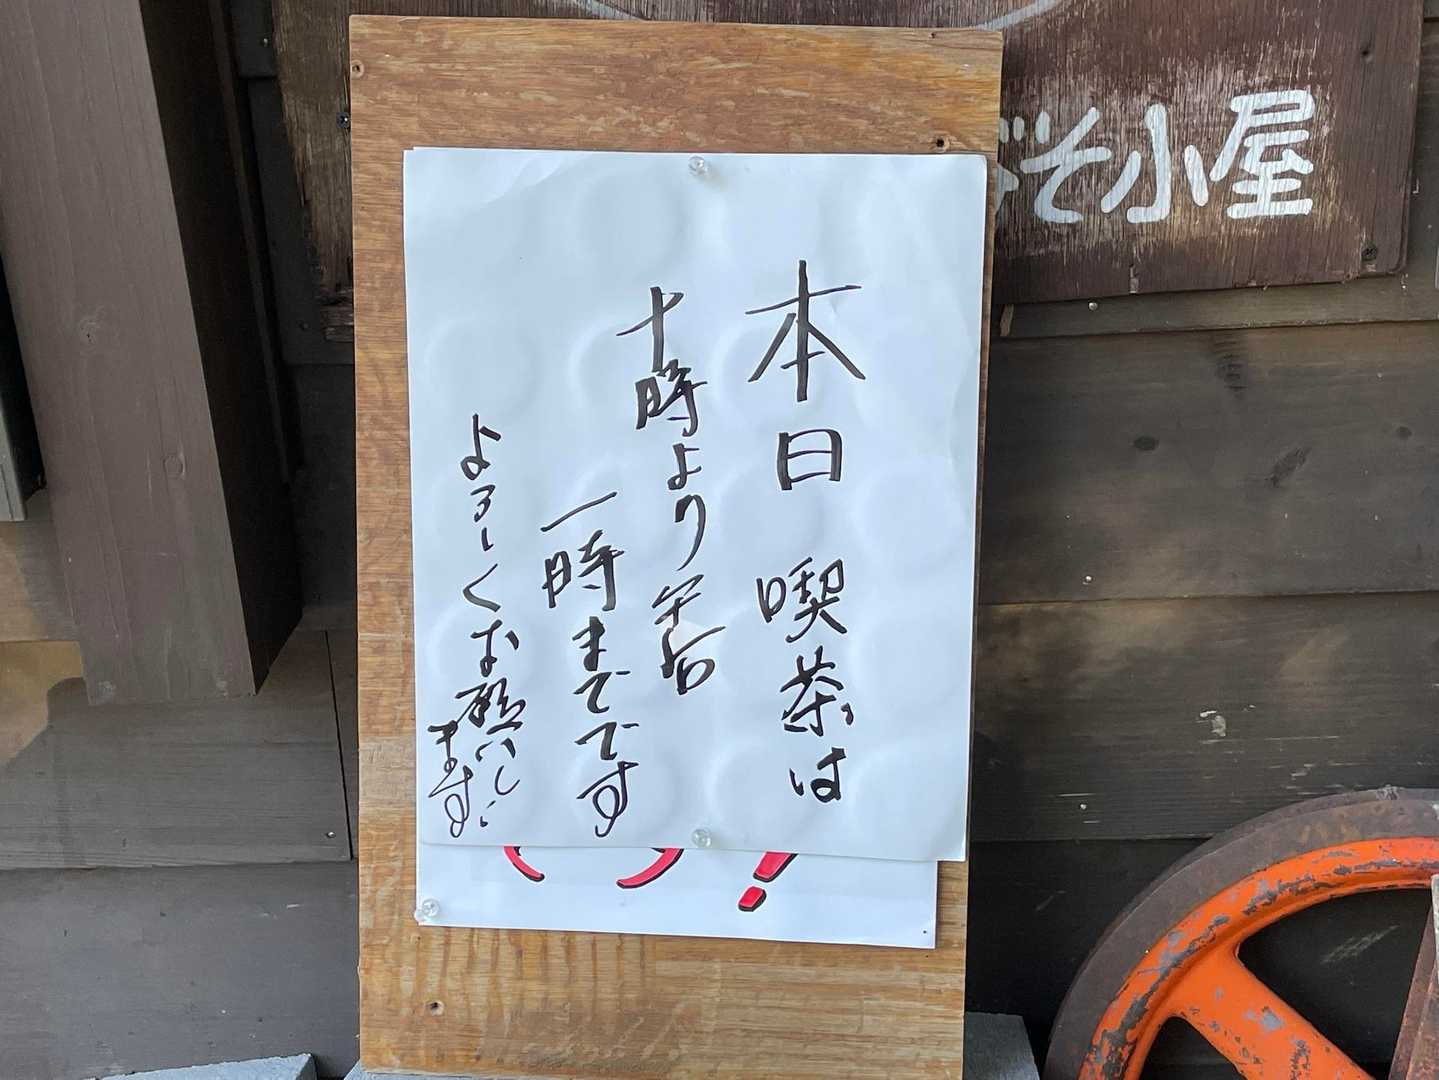 本日 喫茶は
十時より午后
一時までです
よろしくお願いし
ます
みそ小屋